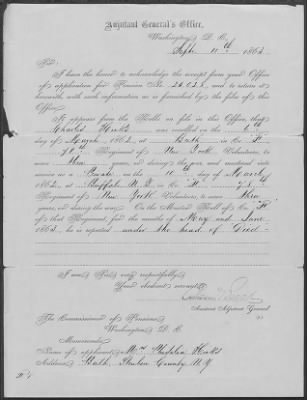 Adjutant General's Office,
Washington, D. C.
Sept. 11th 1863
Sir:
I have the honor to acknowledge the receipt from your Office
of application for Pension No. and to return it
herewith, with such information as is furnished by the files of this
Office.
It appears from the Rolls on file in this Office, that
Charles was enrolled on the
day of 1862, at Bath in Co. F.
78th Regiment of New York Volunteers, to serve
three years, or during the war and mustered into
service as a Private on the 11th day of March
1862, at Buffalo N.Y. in Co. 78th
Regiment of New York Volunteers, to serve three
years, or during the war. On the Muster Roll of Co. F
of that Regiment, for the months of May and June
1863, he is reported under the head of Died
I am, Sir, very respectfully,
Your obedient servant,
Assistant Adjutant General
The Commissioner of Pensions,
Washington, D. C.
Memoranda:
Name of applicant, Mrs
Address, Bath, Steuben County N.Y.